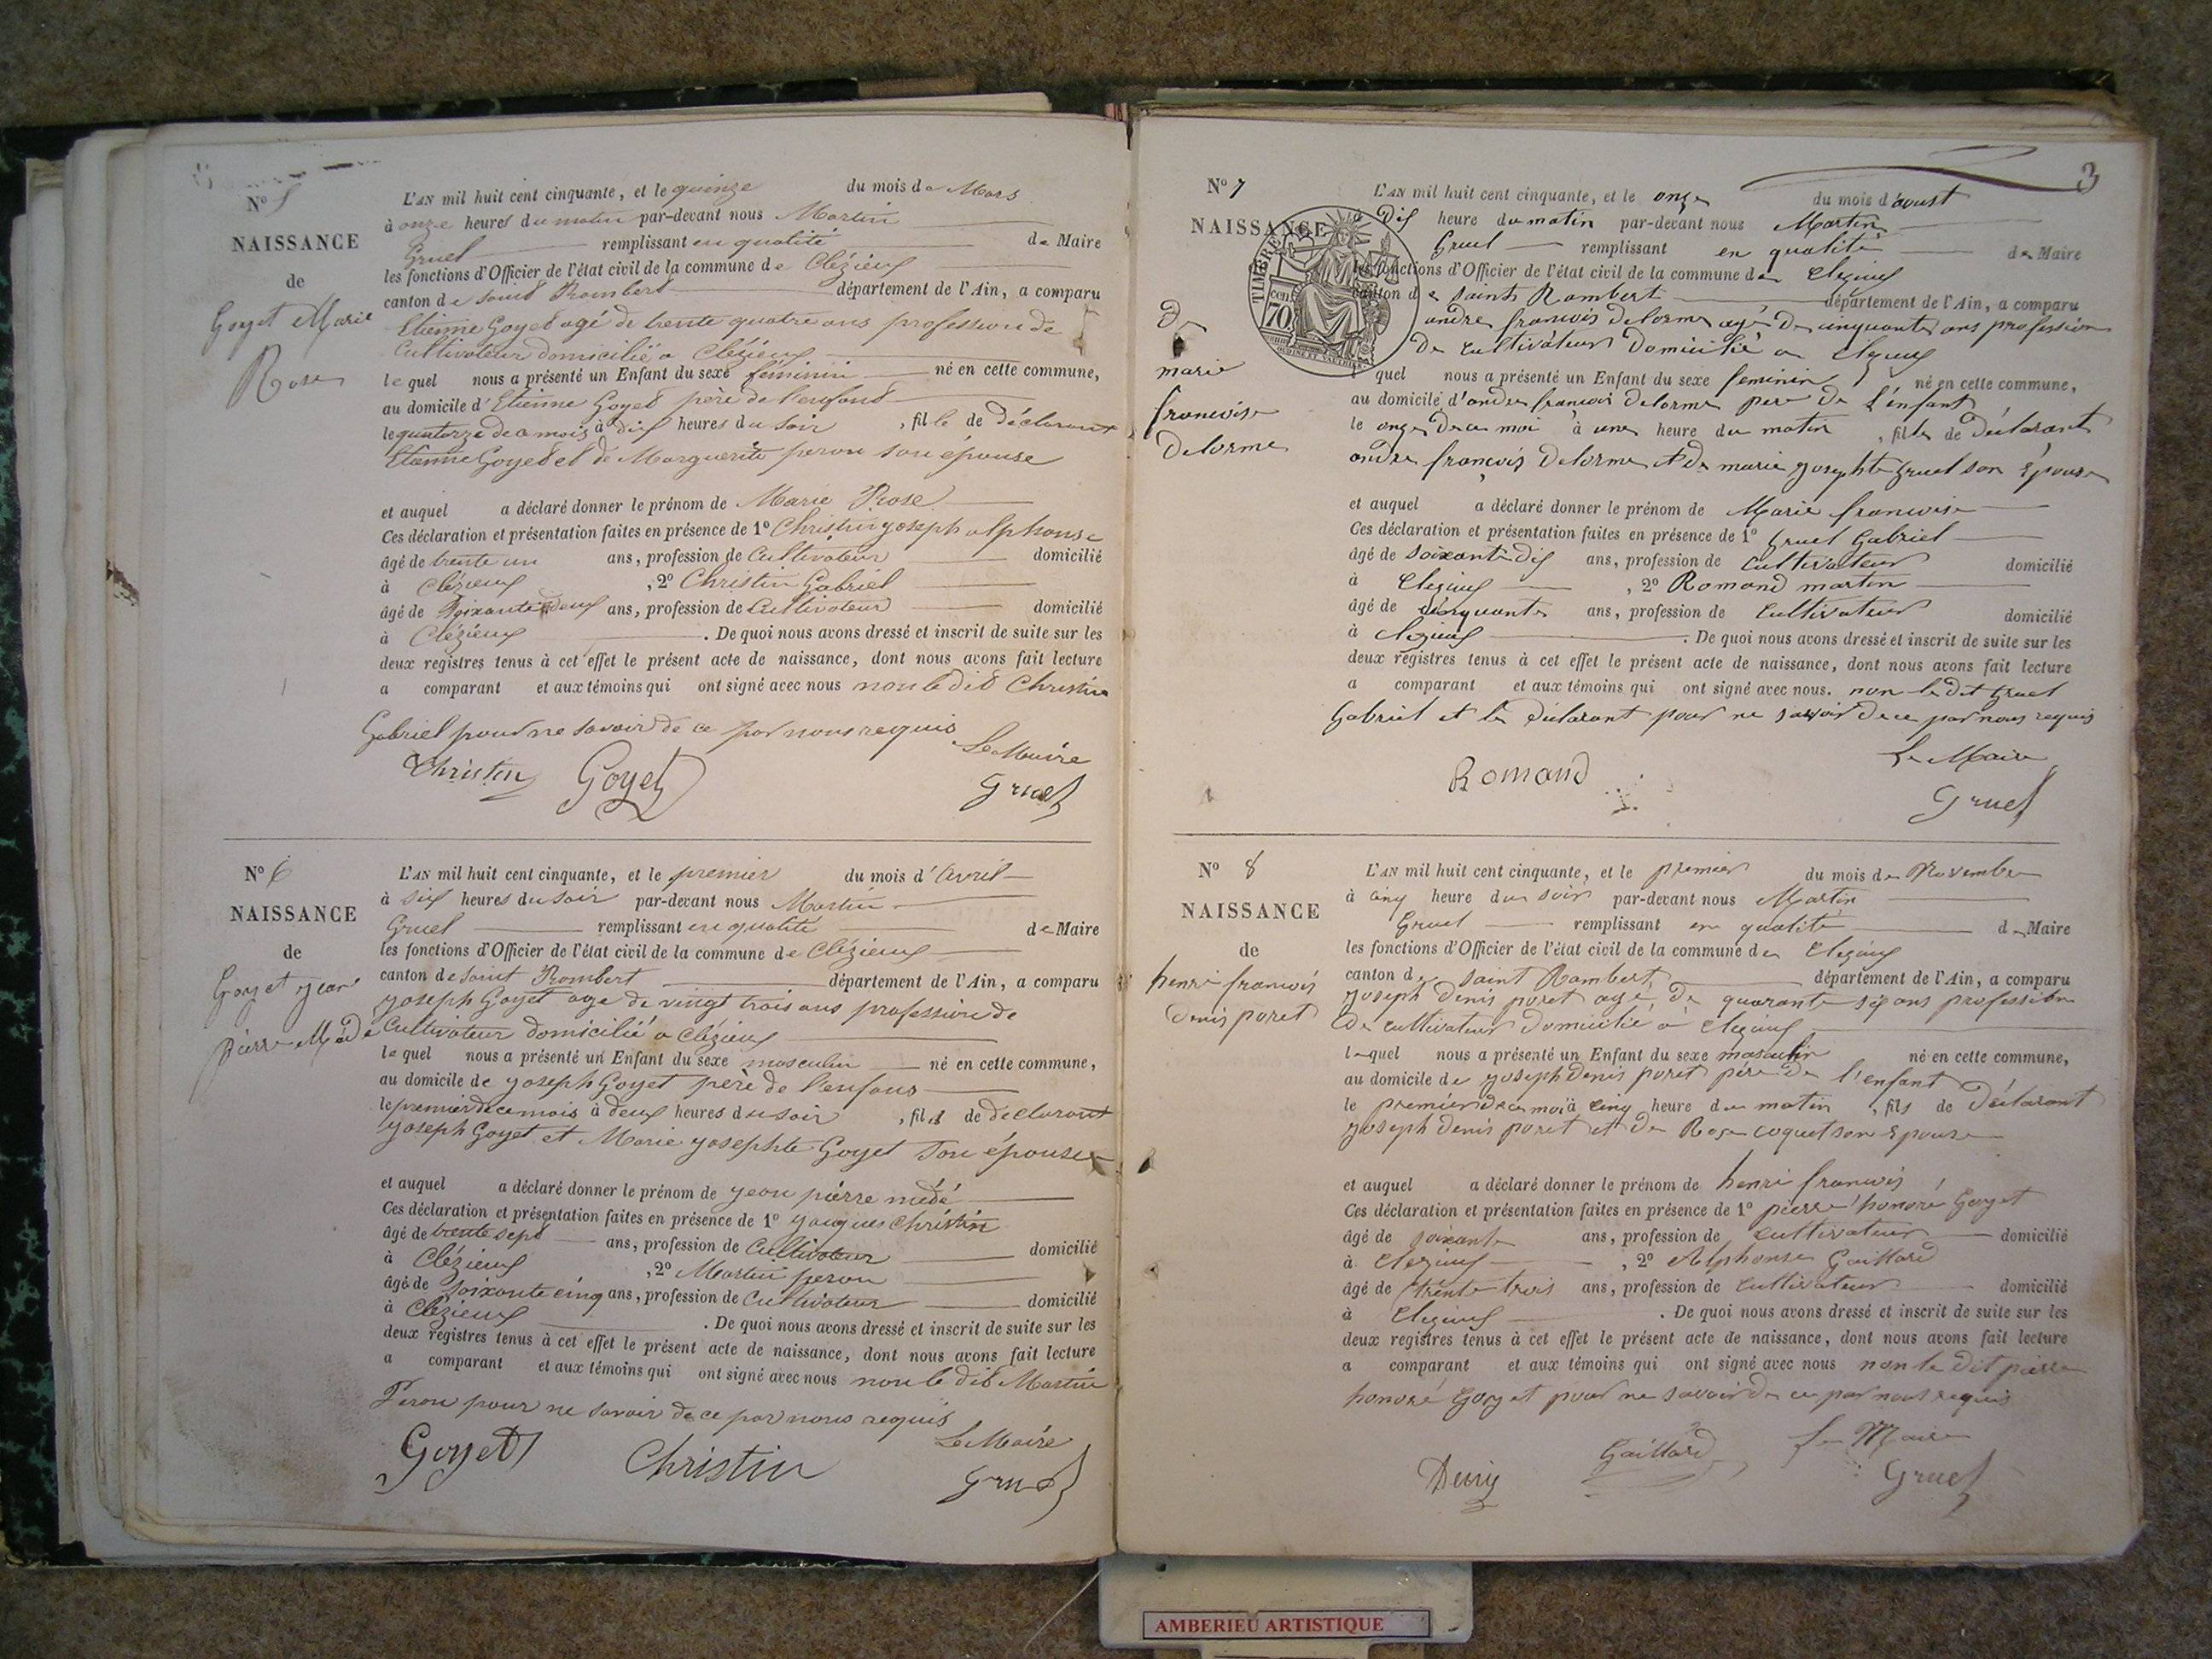 N° 5
NAISSANCE
de
Goyet Marie
Rose
L'AN mil huit cent cinquante, et le quinze du mois de Mars
à onze heures du matin par-devant nous Martin
Gruel remplissant en qualité de Maire
les fonctions d'Officier de l'état civil de la commune de Clézieux
canton de saint Rambert département de l'Ain, a comparu
Etienne Goyet agé de trente quatre ans profession de
Cultivateur domicilié a Clézieux
le quel nous a présenté un Enfant du sexe féminin né en cette commune,
au domicile d'Etienne Goyet père de l'enfant
le quatorze de ce mois à dix heures du soir, fille de déclarant
Etienne Goyet et de Marguerite peron son épouse
et auquel a déclaré donner le prénom de Marie Rose
Ces déclaration et présentation faites en présence de 1° Christin joseph alphonse
âgé de trente un ans, profession de Cultivateur domicilié
à Clézieux, 2° Christin Gabriel
âgé de soixante deux ans, profession de Cultivateur domicilié
à Clézieux. De quoi nous avons dressé et inscrit de suite sur les
deux registres tenus à cet effet le présent acte de naissance, dont nous avons fait lecture
a comparant et aux témoins qui ont signé avec nous non le dit Christin
Gabriel pour ne savoir de ce par nous requis
Le Maire
Christin Goyet Gruel
N° 6
NAISSANCE
de
Goyet jean
pierre Médé
L'AN mil huit cent cinquante, et le premier du mois d'avril
à six heures du soir par-devant nous Martin
Gruel remplissant en qualité de Maire
les fonctions d'Officier de l'état civil de la commune de Clézieux
canton de saint Rambert département de l'Ain, a comparu
joseph Goyet age de vingt trois ans profession de
Cultivateur domicilié a Clézieux
le quel nous a présenté un Enfant du sexe masculin né en cette commune,
au domicile de joseph Goyet père de l'enfant
le premier de ce mois à deux heures du soir, fils de déclarant
joseph Goyet et Marie josephte Goyet son épouse
et auquel a déclaré donner le prénom de jean pierre médé
Ces déclaration et présentation faites en présence de 1° jacques Christin
âgé de trente sept ans, profession de Cultivateur domicilié
à Clézieux, 2° Martin peron
âgé de soixante cinq ans, profession de Cultivateur domicilié
à Clézieux. De quoi nous avons dressé et inscrit de suite sur les
deux registres tenus à cet effet le présent acte de naissance, dont nous avons fait lecture
a comparant et aux témoins qui ont signé avec nous non le dit Martin
Peron pour ne savoir de ce par nous requis
Le Maire
Goyet Christin Gruel
3
N° 7
NAISSANCE
de
marie
francoise
Delorme
TIMBRE
70 cen
OUDINE ET VAUTHIER
L'AN mil huit cent cinquante, et le onze du mois d'aoust
à Dix heure du matin par-devant nous Martin
Gruel remplissant en qualité de Maire
les fonctions d'Officier de l'état civil de la commune de Clezieux
canton de saint Rambert département de l'Ain, a comparu
andre francois delorme agé De cinquante ans profession
De cultivateur Domicilié a Clezieux
l quel nous a présenté un Enfant du sexe feminin né en cette commune,
au domicile d'andre francois Delorme pere De L'enfant
le onze De ce moi à une heure du matin, fille de Déclarant
andre françois Delorme et de marie josephte gruel son Épouse
et auquel a déclaré donner le prénom de Marie francoise
Ces déclaration et présentation faites en présence de 1° gruel Gabriel
âgé de soixante dix ans, profession de Cultivateur domicilié
à Clezieux, 2° Romand martin
âgé de cinquante ans, profession de Cultivateur domicilié
à Clezieux. De quoi nous avons dressé et inscrit de suite sur les
deux registres tenus à cet effet le présent acte de naissance, dont nous avons fait lecture
a comparant et aux témoins qui ont signé avec nous. non le dit gruel
Gabriel et le Déclarant pour ne savoir de ce par nous requis
Le Maire
Romand Gruel
N° 8
NAISSANCE
de
henri francois
denis poret
L'AN mil huit cent cinquante, et le premier du mois de Novembre
à cinq heure du soir par-devant nous Martin
Gruel remplissant en qualité de Maire
les fonctions d'Officier de l'état civil de la commune de Clezieux
canton de saint Rambert département de l'Ain, a comparu
joseph denis poret agé De quarante six ans profession
De cultivateur Domicilié à Clezieux
lequel nous a présenté un Enfant du sexe masculin né en cette commune,
au domicile de joseph denis poret pére De l'enfant
le premier de ce moi à cinq heure du matin, fils de Déclarant
joseph denis poret et De Rose coquet son Epouse
et auquel a déclaré donner le prénom de henri francois
Ces déclaration et présentation faites en présence de 1° pierre honoré Goyet
âgé de soixante ans, profession de Cultivateur domicilié
à Clezieux, 2° Alphonse Gaillard
âgé de trente trois ans, profession de Cultivateur domicilié
à Clezieux. De quoi nous avons dressé et inscrit de suite sur les
deux registres tenus à cet effet le présent acte de naissance, dont nous avons fait lecture
a comparant et aux témoins qui ont signé avec nous non le dit pierre
honoré Goyet pour ne savoir de ce par nous requis
Le Maire
Denis Gaillard Gruel
AMBERIEU ARTISTIQUE